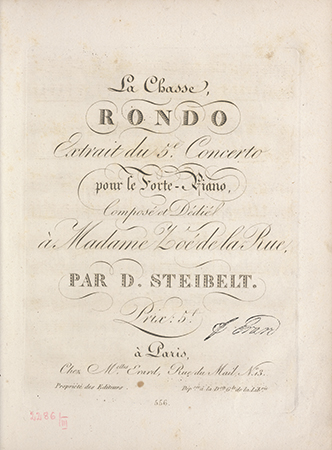 La Chasse,
RONDO
Extrait du 5.e Concerto
pour le Forte-Piano,
Composé et Dédié
à Madame Zoé de la Rue,
PAR D. STEIBELT.
Prix: 5.f
à Paris,
Chez M.elles Erard, Rue du Mail, N.o 13.
Propriété des Editeurs.
Dép.
à la
de la
556.
2286/III